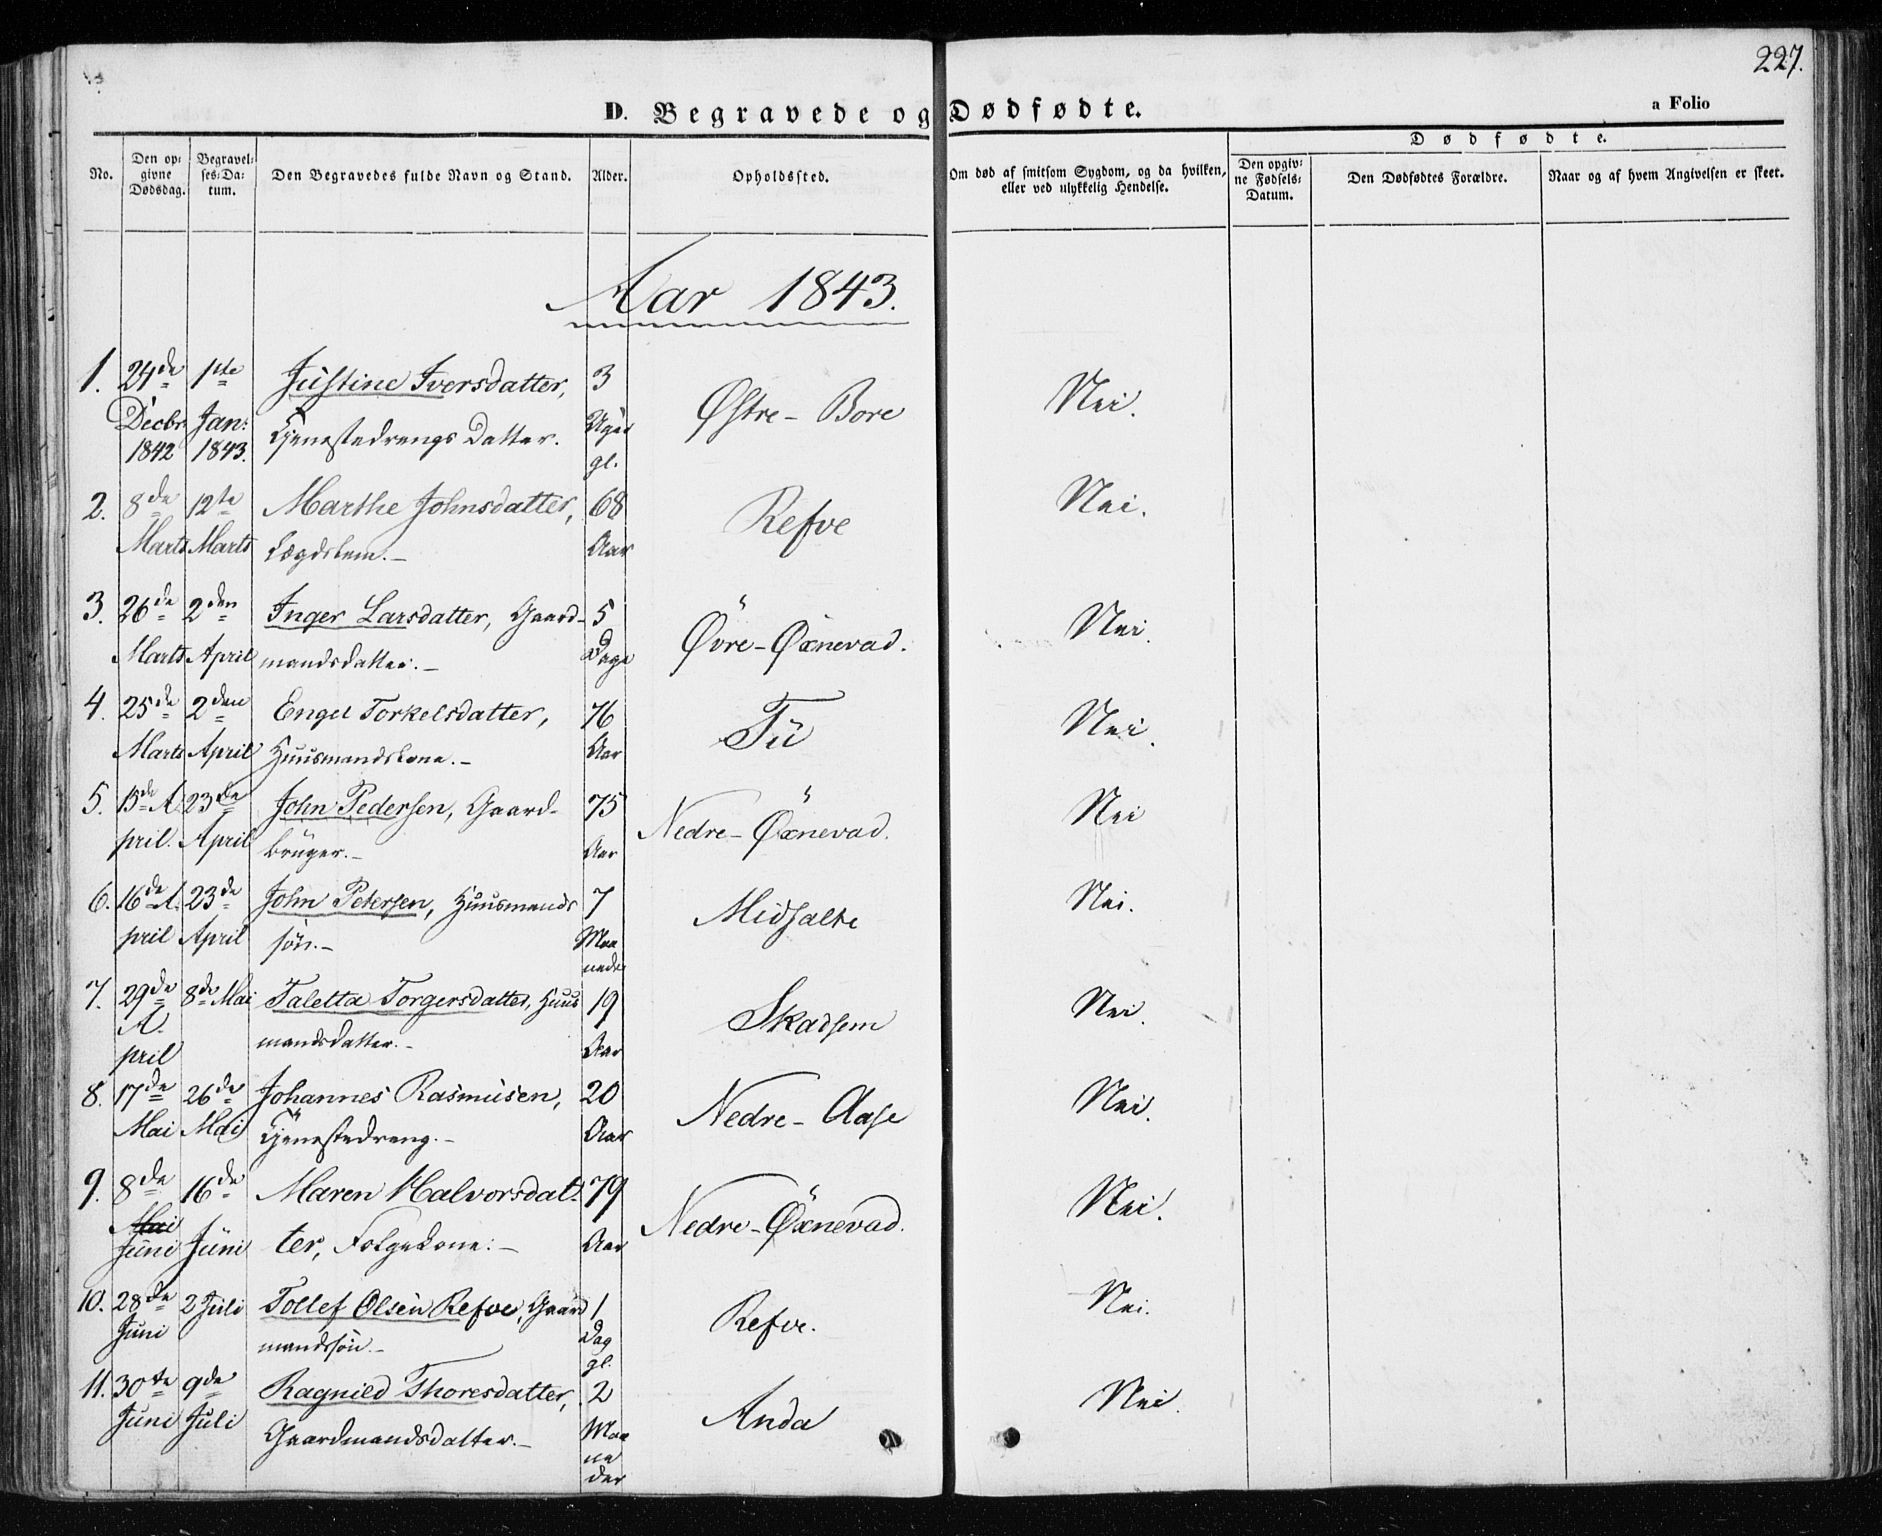 227.
D. Begravede og Dødfødte.
a Folio
No.
Den op-
givne
Dødsdag.
Begravel-
ses-Da-
tum.
Den Begravedes fulde Navn og Stand.
Alder.
Opholdssted.
Om død af smitsom Sygdom, og da hvilken,
eller ved ulykkelig Hendelse.
Dødfødte.
Den opgiv-
ne Fødsels-
Datum.
Den Dødfødtes Forældre.
Naar og af hvem Angivelsen er skeet.
Aar 1843.
1. 24de 1ste Justine Iversdatter, 3
Decbr Jan: Tjenestedrengs Datter. Uger Østre-Bore Nei.
1842 1843. gl.
2. 8de 12te Marthe Johnsdatter, 68 Refve Nei.
Marts Marts Lægdslem.- Aar
3. 26de 2den Inger Larsdatter, Gaard- 5 Øvre-Øxnevad. Nei.
Marts April mandsdatter.- Dage
4. 25de 2den Engel Torkelsdatter, 76 Tü Nei.
Marts April Huusmandskone.- Aar
5. 15de A 23de John Pedersen, Gaard- 75 Nedre-Øxnevad. Nei
pril. April brüger.- Aar
6. 16de A. 23de John Petersen, Huusmands 7 Midgalte Nei.
pril April søn.- Maa
neder
7. 29de 8de Mai Taletta Torgersdatter, Huus 19 Skadsem Nei.
A. mandsdatter.- Aar
pril
8. 17de 26de Johannes Rasmüsen, 20 Nedre-Aase Nei.
Mai Mai Tjenestedreng.- Aar
9. 8de 16de Maren Halvorsdat- 79 Nedre-Øxnevad. Nei.
Mai
Juni Jüni ter, Folgekone:- Aar
10. 28de 2 Juli Tollef Olsen Refve, Gaard 1 Refve. Nei.
Juni mandssøn.- Dag
gl.
11. 30te 9de Ragnild Thoresdatter, 2 Anda Nei.
Juni Juli Gaardmandsdatter.- Maa
ne
der